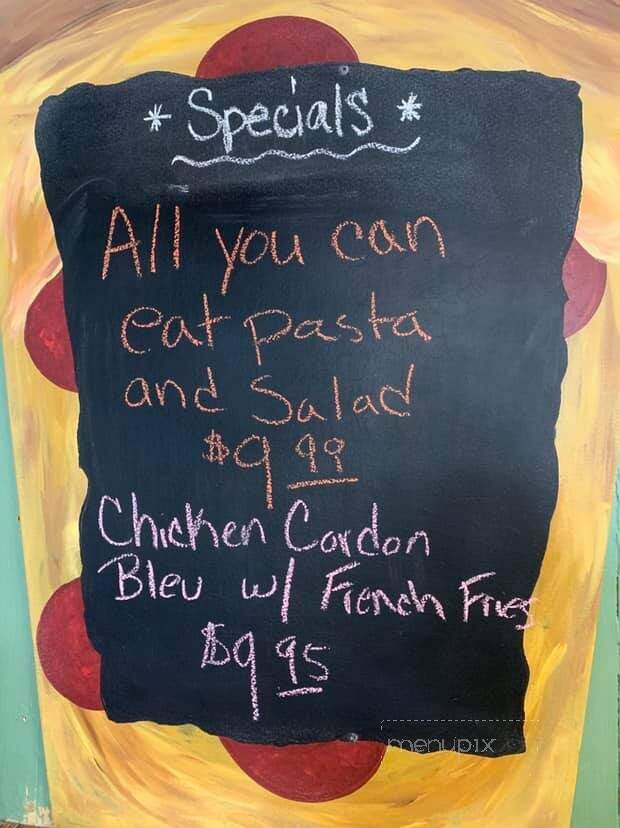 * Specials *
All you can
eat pasta
and Salad
$9 99
Chicken Cordon
Bleu w/ French Fries
$9 95
menupix